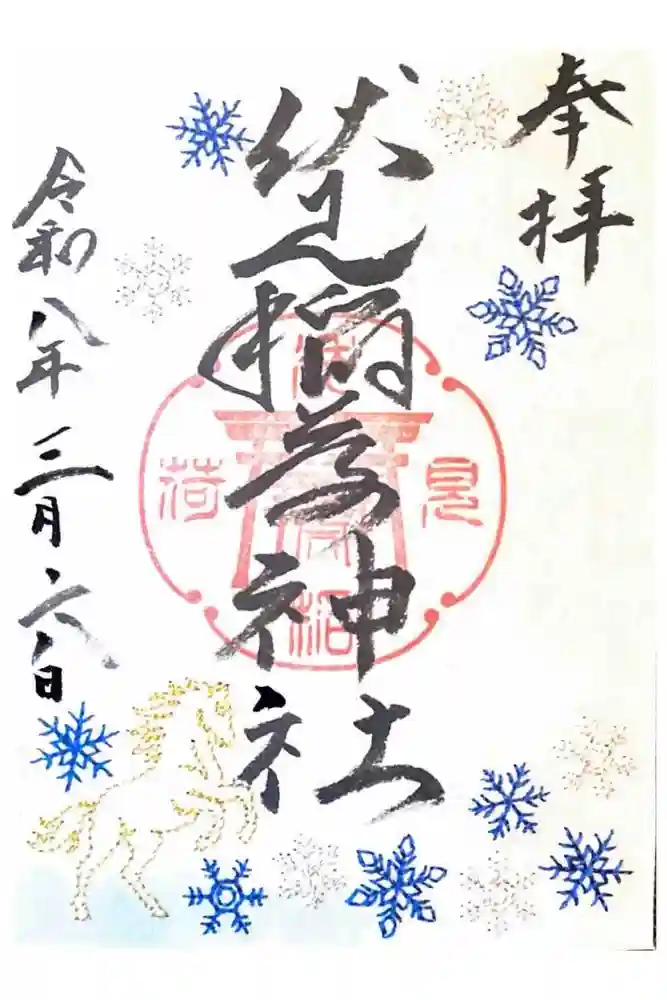 奉拝
伏見稲荷神社
伏
見
稲
荷
令和八年三月六日